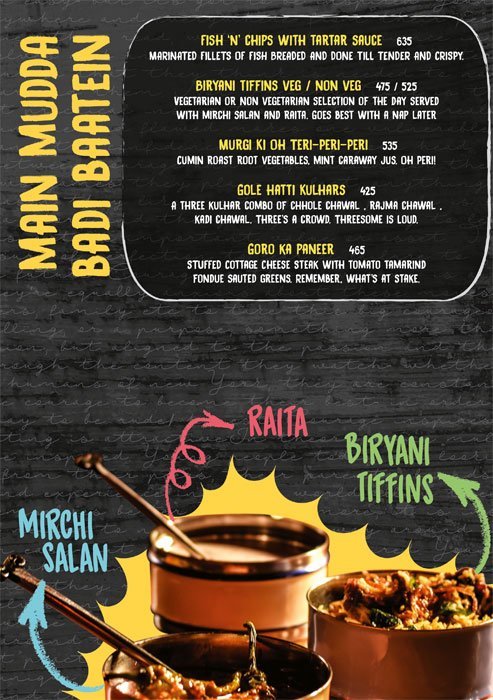 MAIN MUDDA
BADI BAATEIN
FISH 'N' CHIPS WITH TARTAR SAUCE 635
MARINATED FILLETS OF FISH BREADED AND DONE TILL TENDER AND CRISPY.
BIRYANI TIFFINS VEG / NON VEG 475 / 525
VEGETARIAN OR NON VEGETARIAN SELECTION OF THE DAY SERVED
WITH MIRCHI SALAN AND RAITA. GOES BEST WITH A NAP LATER
MURGI KI OH TERI-PERI-PERI 535
CUMIN ROAST ROOT VEGETABLES, MINT CARAWAY JUS. OH PERI!
GOLE HATTI KULHARS 425
A THREE KULHAR COMBO OF CHHOLE CHAWAL , RAJMA CHAWAL ,
KADI CHAWAL. THREE'S A CROWD. THREESOME IS LOUD.
GORO KA PANEER 465
STUFFED COTTAGE CHEESE STEAK WITH TOMATO TAMARIND
FONDUE SAUTED GREENS. REMEMBER, WHAT'S AT STAKE.
RAITA
BIRYANI
TIFFINS
MIRCHI
SALAN